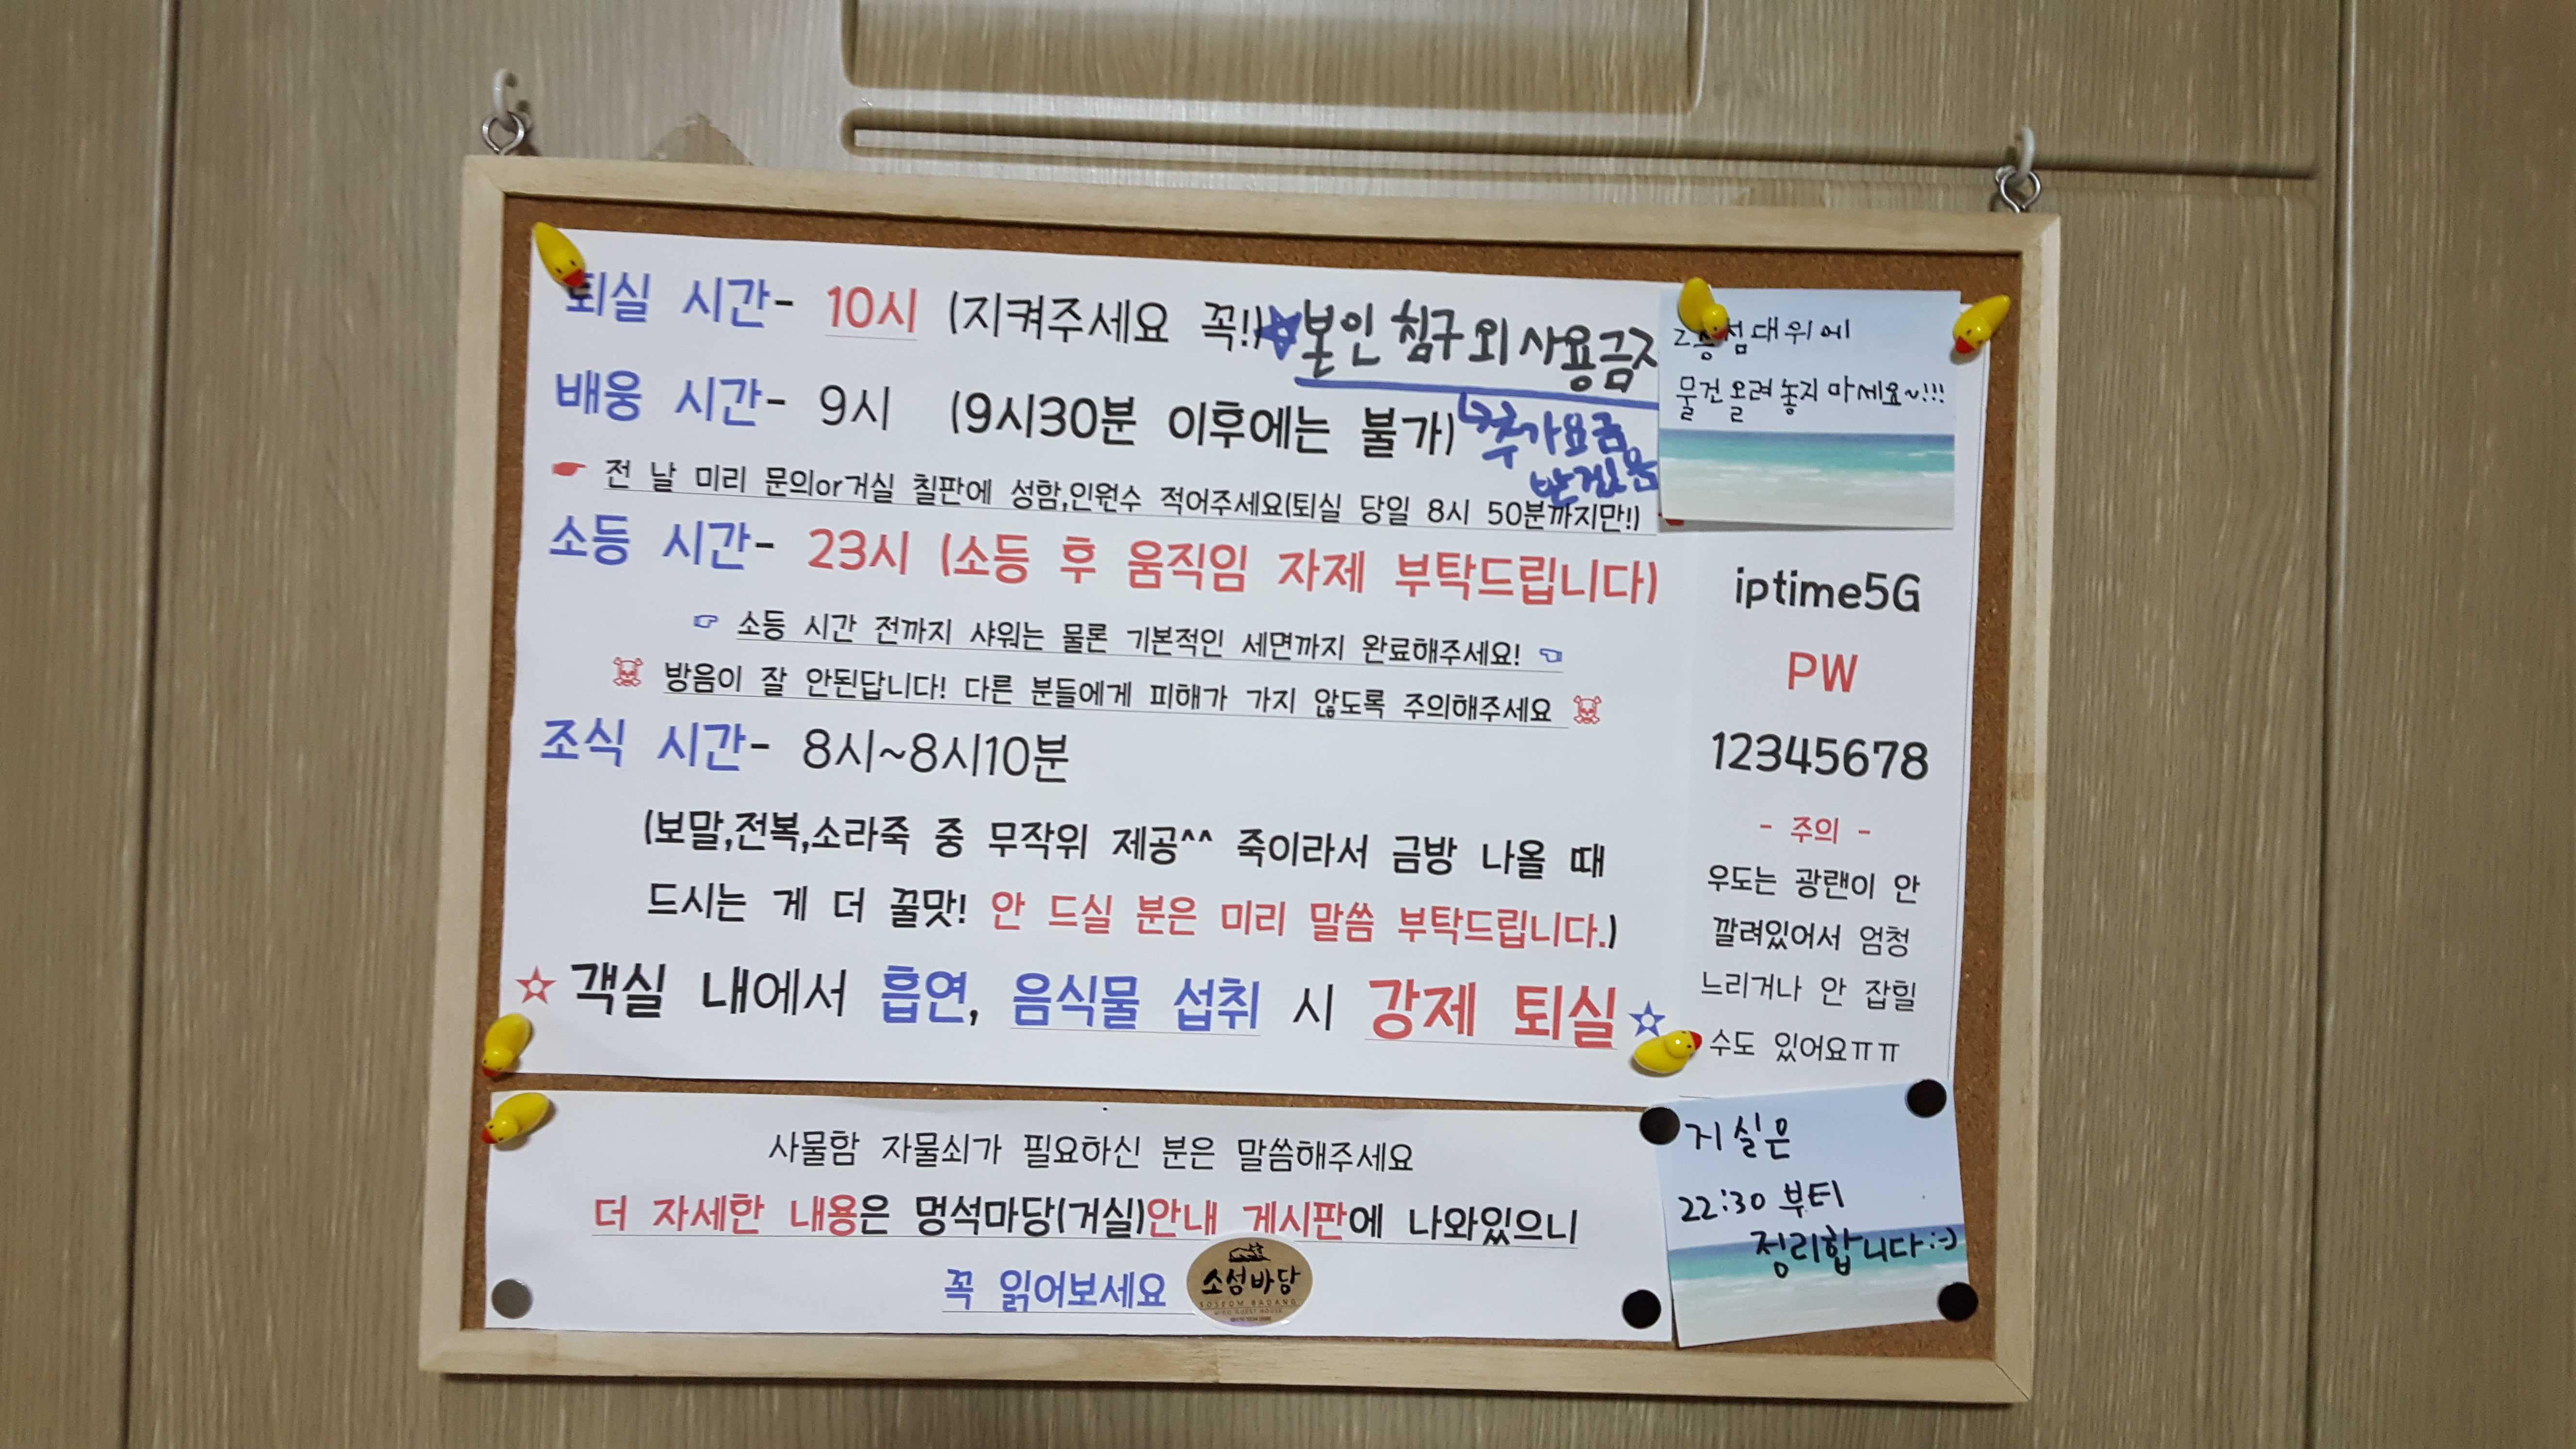 퇴실 시간- 10시 (지켜주세요 꼭!)
본인 침구 외 사용금지
배웅 시간- 9시 (9시30분 이후에는 불가)
추가요금
받겠음
전 날 미리 문의or거실 칠판에 성함,인원수 적어주세요(퇴실 당일 8시 50분까지만!)
소등 시간- 23시 (소등 후 움직임 자제 부탁드립니다)
소등 시간 전까지 샤워는 물론 기본적인 세면까지 완료해주세요!
방음이 잘 안된답니다! 다른 분들에게 피해가 가지 않도록 주의해주세요
조식 시간- 8시~8시10분
(보말,전복,소라죽 중 무작위 제공^^ 죽이라서 금방 나올 때
드시는 게 더 꿀맛! 안 드실 분은 미리 말씀 부탁드립니다.)
☆객실 내에서 흡연, 음식물 섭취 시 강제 퇴실☆
2층 침대위에
물건 올려 놓지 마세요~!!!
iptime5G
PW
12345678
- 주의 -
우도는 광랜이 안
깔려있어서 엄청
느리거나 안 잡힐
수도 있어요ㅠㅠ
사물함 자물쇠가 필요하신 분은 말씀해주세요
더 자세한 내용은 멍석마당(거실)안내 게시판에 나와있으니
꼭 읽어보세요
소섬바당
SOSEOM BADANG
거실은
22:30 부터
정리합니다:-)